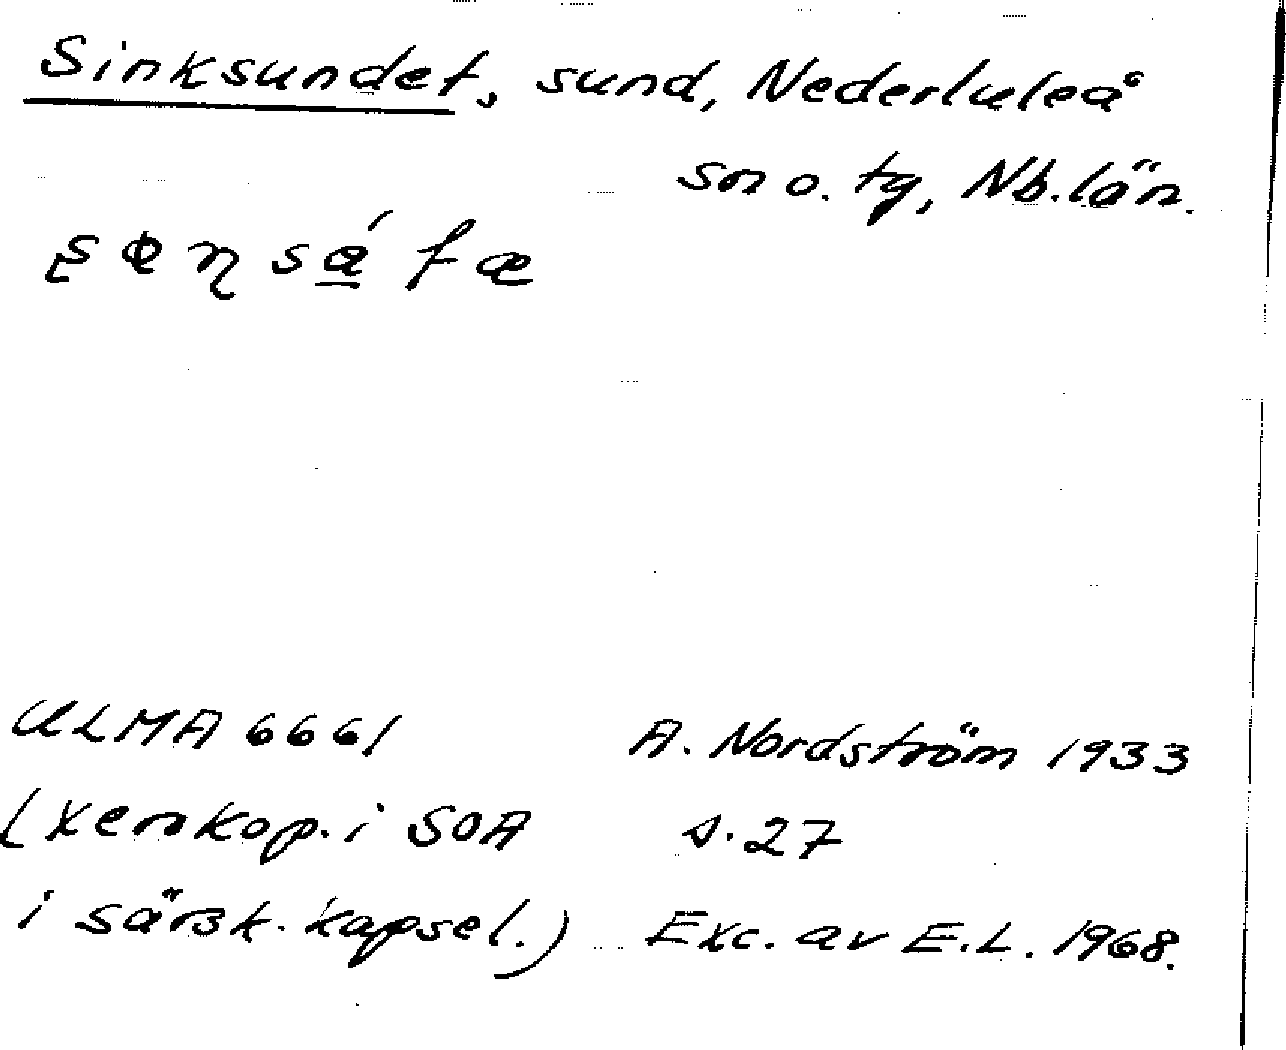 Sinksundet, sund, Nederluleå
sn o. tg, Nb. län.
ULMA 6661
A. Nordström 1933
(Xerokop. i SOA
s. 27
i särsk. kapsel.)
Exc. av E.L. 1968.